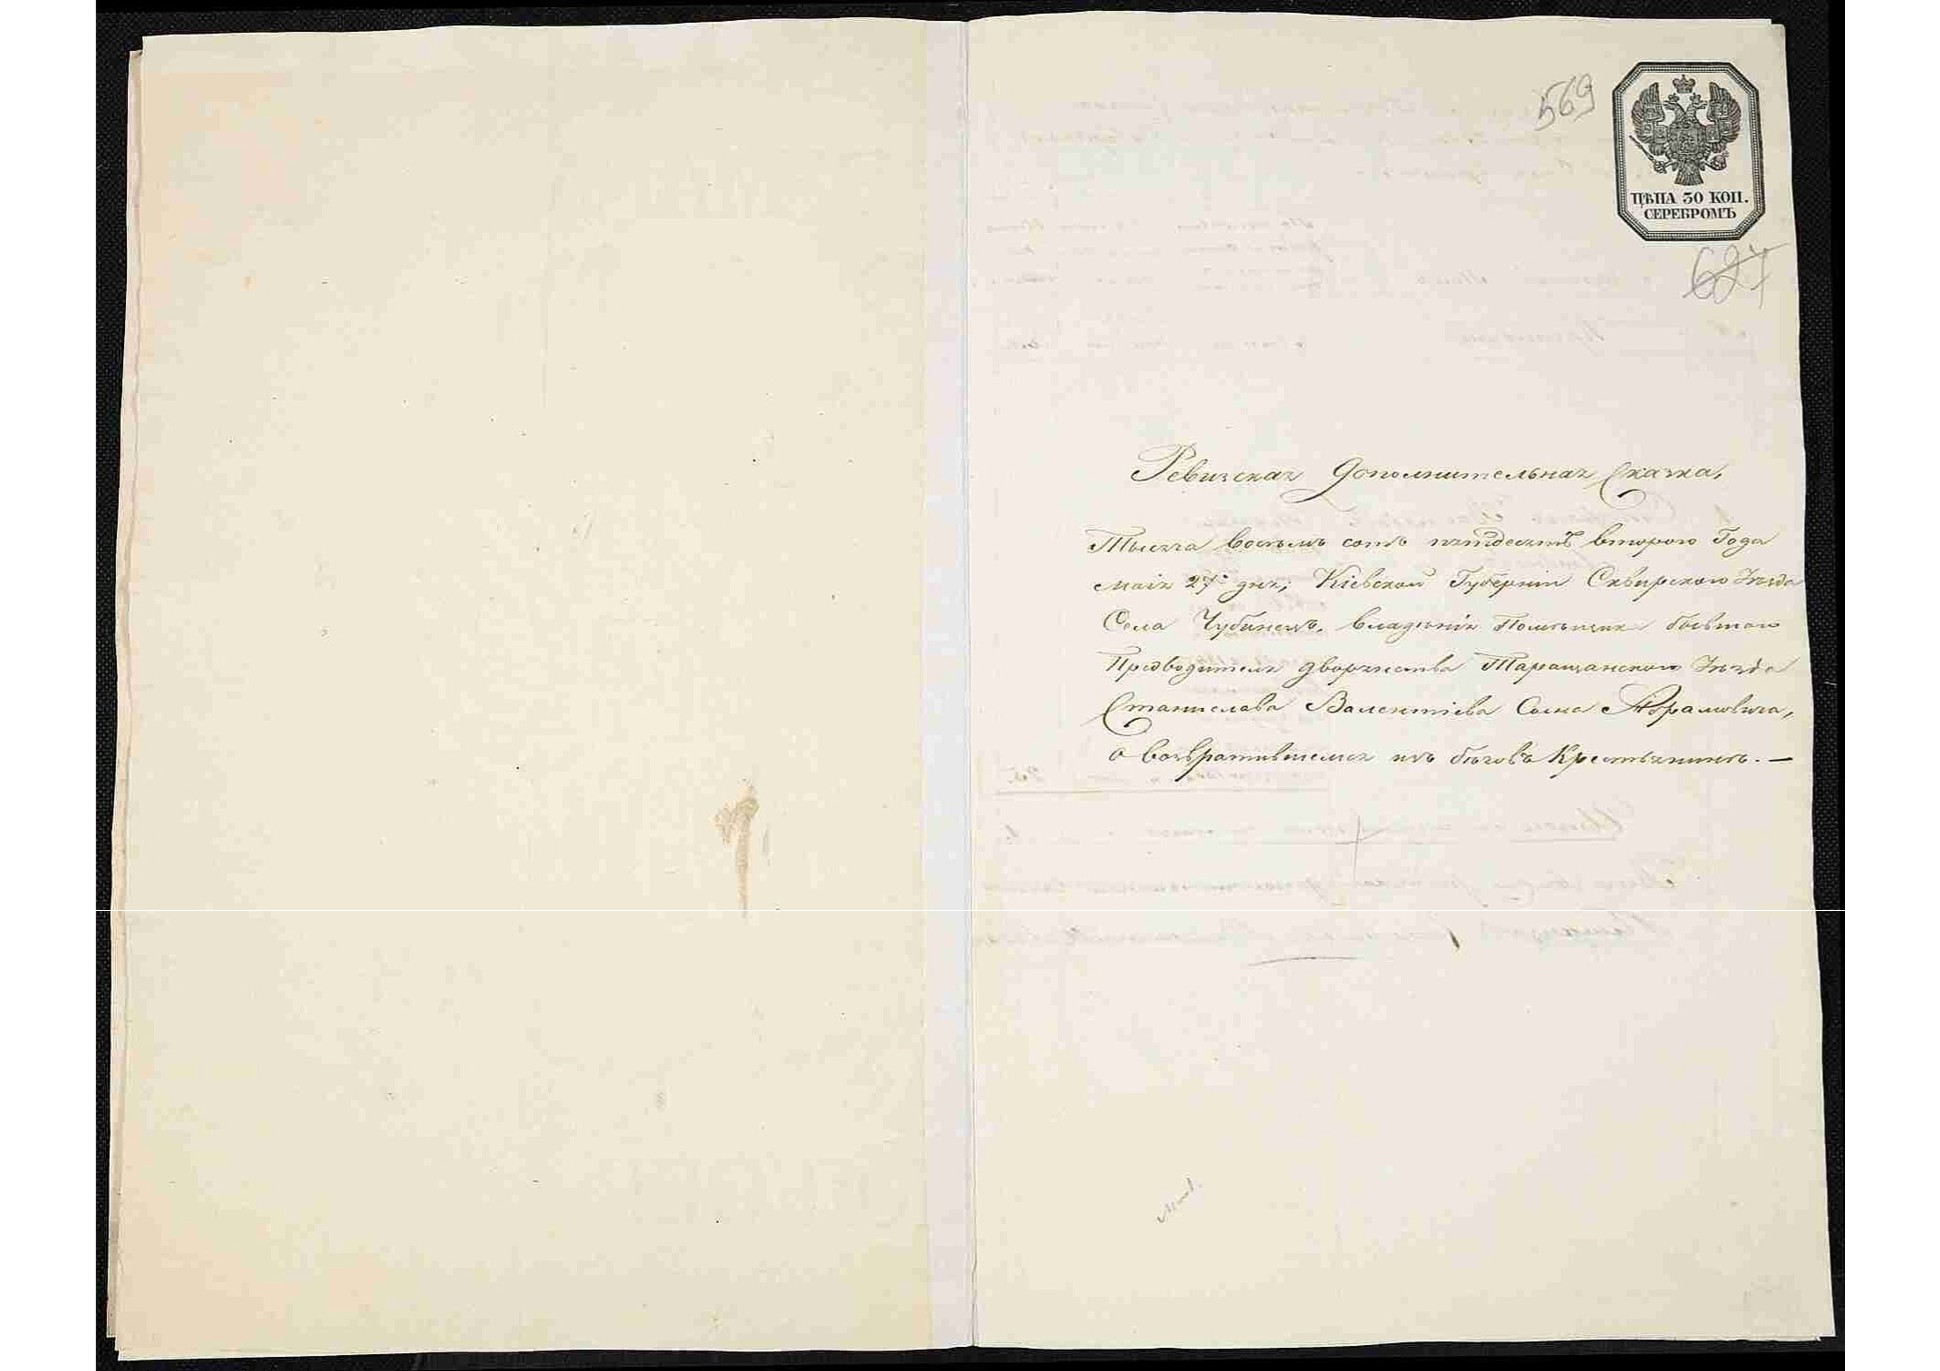 569
ЦѢНА 30 КОП.
СЕРЕБРОМЪ
627
Ревизская дополнительная Сказка,
Тысяча восемь сотъ пятдесятъ втораго Года
маія 27 дня; Кіевской Губерніи Сквирскаго Уѣзда
Села Чубинецъ, владѣнія Помѣщика бывшаго
Предводителя дворянства Таращанскаго Уѣзда
Станислава Валентіева Сына Абрамовича,
о возвратившемся изъ бѣговъ Крестьянинѣ. —